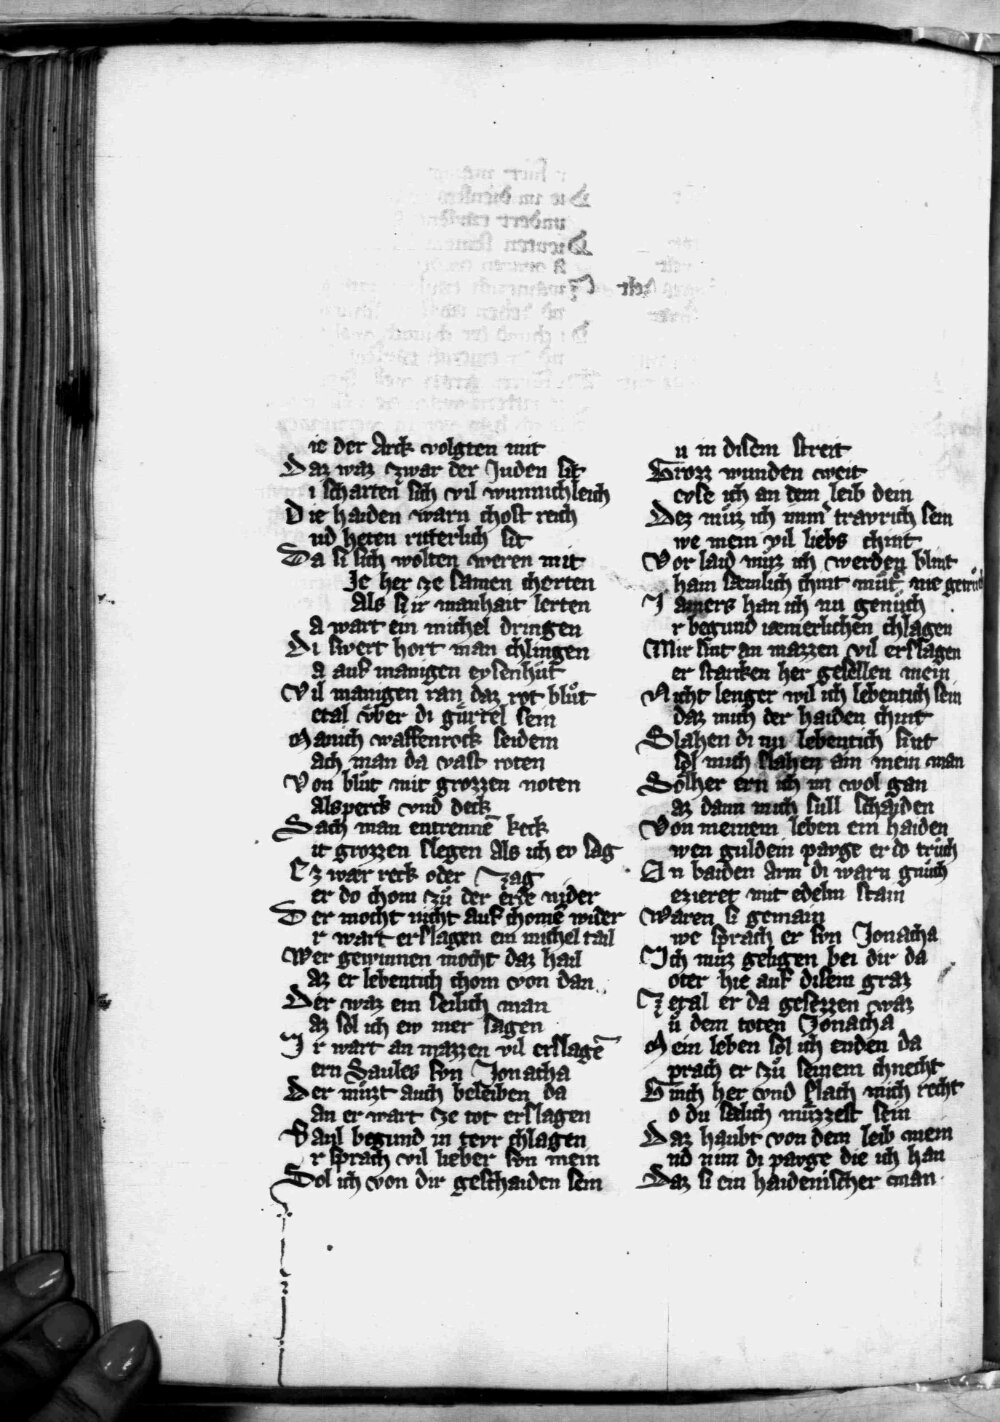 ie der Arck volgten mit
Daz waz zwar der Juden sit
i scharten sich vil wunnichleich
Die haiden warn chost reich
nd heten riterlich sit
Da si sich wolten weren mit
Je her ze samen cherten
Als si ir manhait lerten
a wart ein michel dringen
Di swert hort man chlingen
a auf manigen eysenhut
Vil manigen ran daz rot blůt
etal vber di gürtel sein
Manich waffenrock seidem
ach man da vast roten
Von blůt mit grozzen noten
als perck vnd deck
Sach man entrennē keck
it grozzen slegen als ich ev sag
Ez wär reck oder zag
er do chom zů der erde nider
Der mocht nicht auf chomē wider
r wart erslagen ein michel tail
Wer gewinnen mocht daz hail
az er lebentich chom von dan
Der waz ein selich man
az sol ich ew mer sagen
Ir wart an mazzen vil erslagē
ern Saules svn Jonacha
Der můzt auch beleiben da
an er wart ze tot erslagen
Saul begund in tevr chlagen
r sprach vil lieber svn mein
Sol ich von dir geschaiden sein
u in disem streit
Grozz wunden weit
eyse ich an dem leib dein
Dez můz ich imm travrich sein
we mein vil liebs chint
Vor laid můz ich werden blint
ham sämlich chint můt nie
Jamers han ich nu genůch
r begund iæmerlichen chlagen
Mir sint an mazzen vil erslagen
er starken her gesellen mein
Nicht lenger wil ich lebentich sein
daz mich der haiden chint
Slahen di nu lebentich sint
sol mich slahen ain mein man
Sölher ern ich im wol gan
az dann mich sull schaiden
Von meinem leben ein haiden
wen guldein pavge er do trůch
An baiden arm di warn gnůch
ezieret mit edelm stain
Waren si gemain
we sprach er svn Jonacha
Ich můz geligen bei dir da
oter hie auf disem graz
Zetal er da gesezzen waz
ů dem toten Jonacha
Mein leben sol ich enden da
prach er zů seinem chnecht
Ginch her vnd slach mich recht
o du sælich můzzest sein
Daz haubt von dem leib mein
nd nim di pavge die ich han
Daz si ein haidenischer man